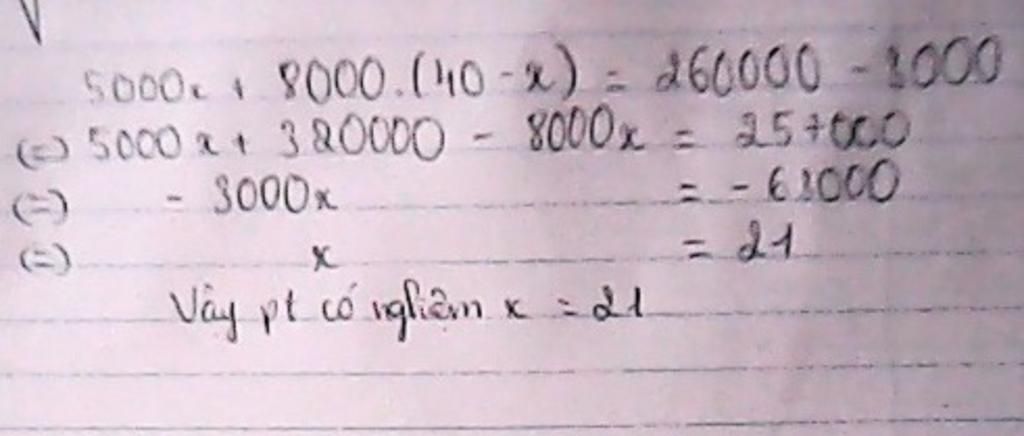 5000x + 8000.(40 - x) = 260000 - 3000
(=) 5000x + 320000 - 8000x = 257000
(=) - 3000x = - 63000
(=) x = 21
Vậy pt có nghiệm x = 21